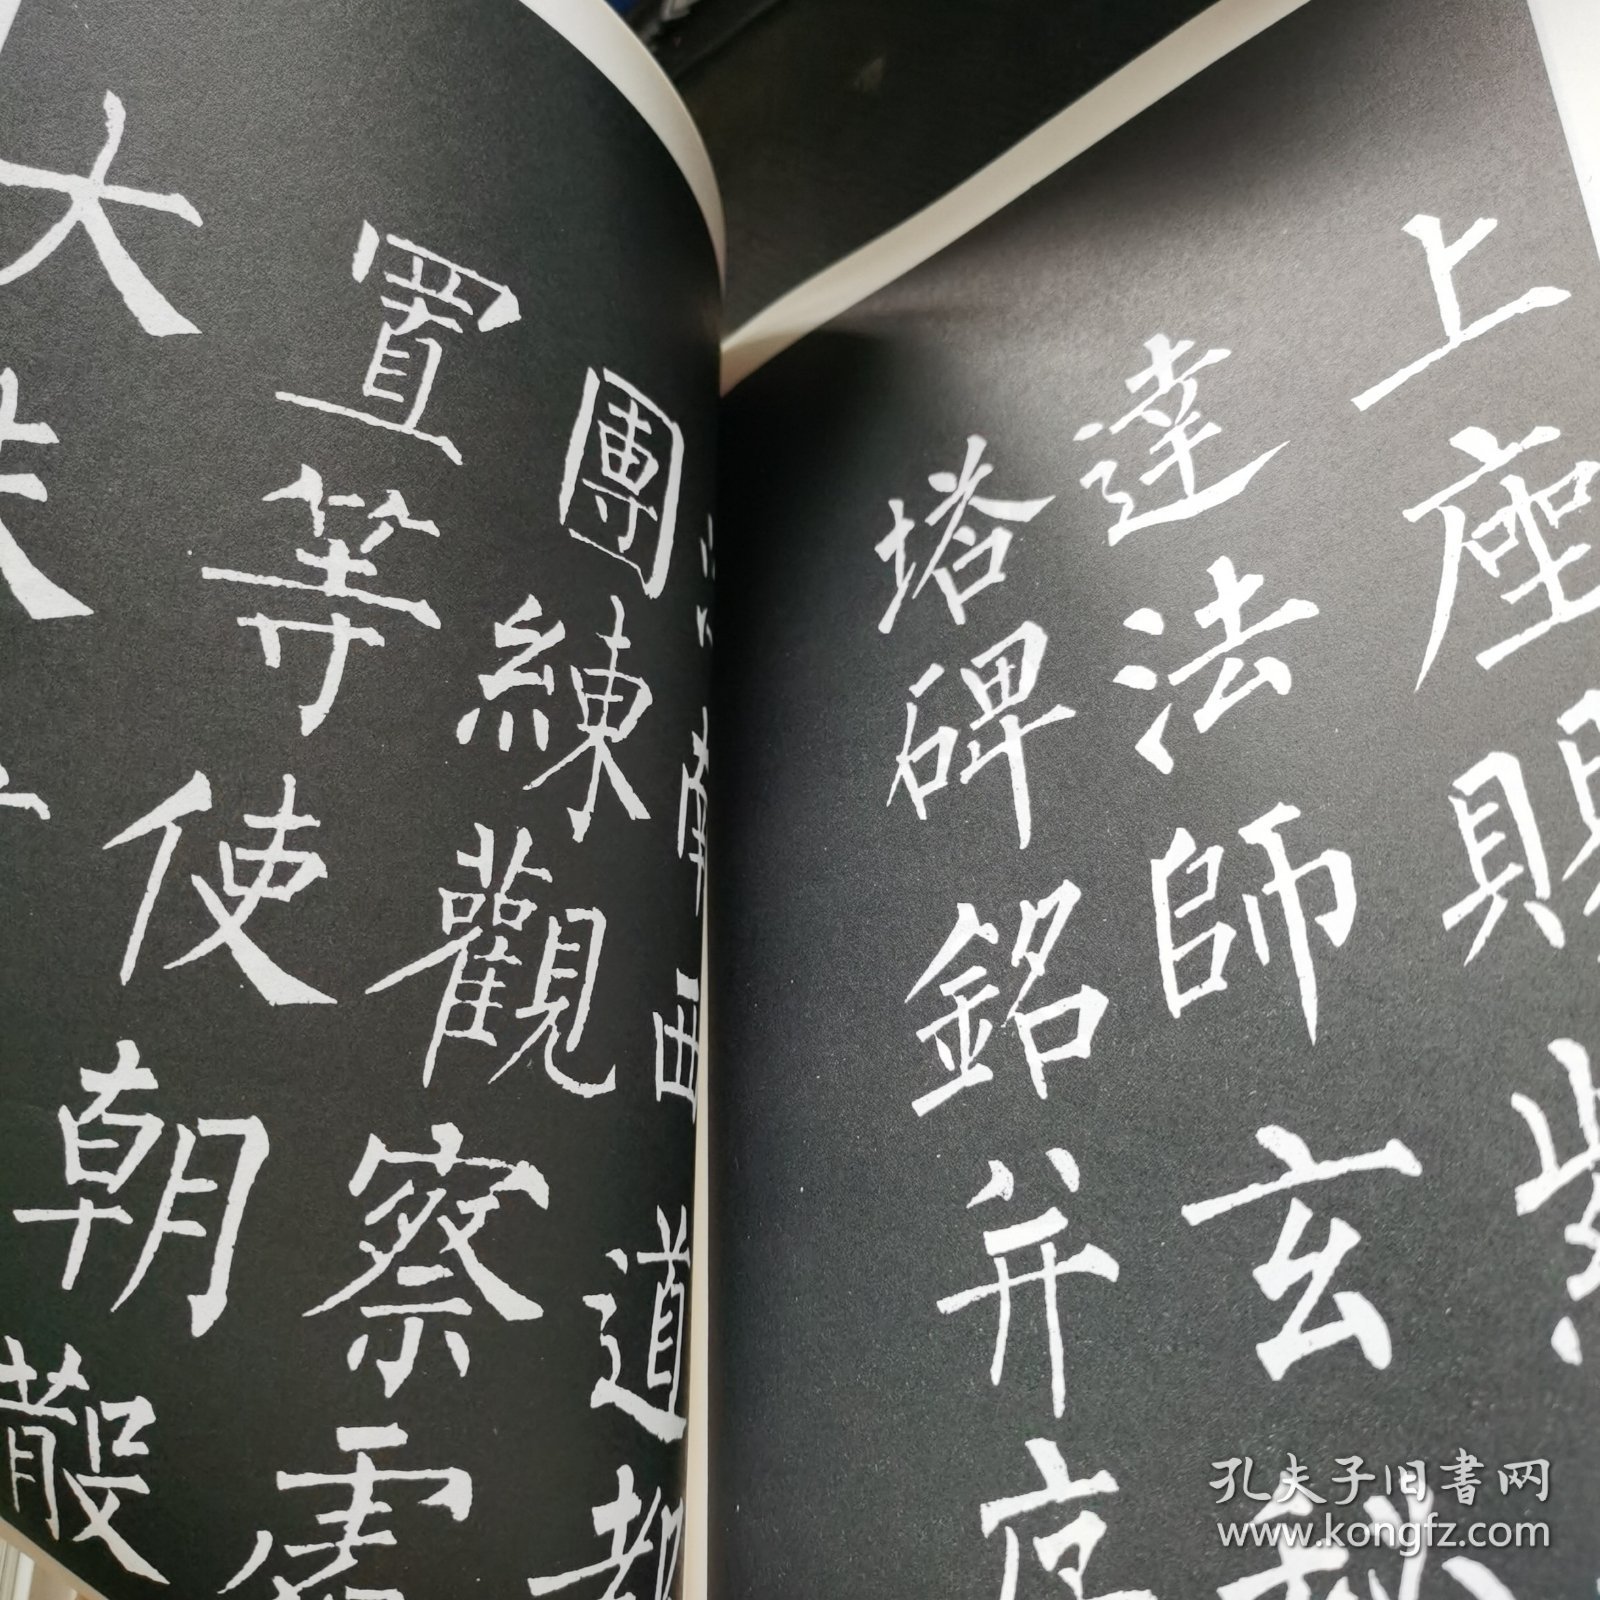 上座賜紫
達法師玄秘
塔碑銘并序
南西道都
團練觀察處
置等使朝散
大
孔夫子旧書网
www.kongfz.com